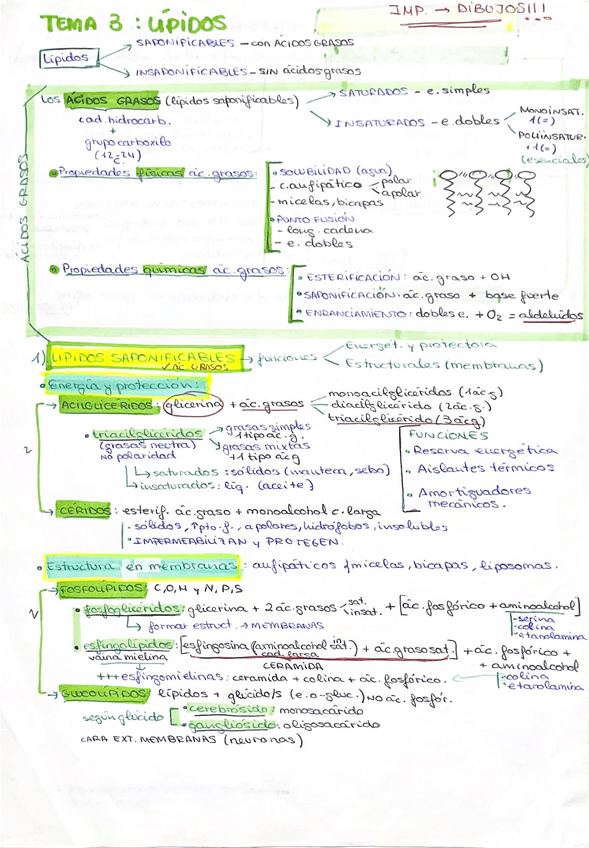 IMP. → DIBUJOS!!!
TEMA 3: LÍPIDOS
Lípidos
SAPONIFICABLES - con ÁCIDOS GRASOS
INSAPONIFICABLES - SIN ácidos grasos
ÁCIDOS GRASOS
Los ÁCIDOS GRASOS (lípidos saponificables)
SATURADOS - e. simples
INSATURADOS - e. dobles
MONOINSAT.
1(=)
POLIINSATUR.
+1(=)
(esenciales)
cad. hidrocarb.
+
grupo carboxilo
(12-24)
C.
Propiedades físicas ác. grasos:
• SOLUBILIDAD (agua)
- c. anfipático
polar
apolar
- micelas, bicapas
• PUNTO FUSIÓN
- long. cadena
- e. dobles
Propiedades químicas ác. grasos:
• ESTERIFICACIÓN: ác. graso + OH
• SAPONIFICACIÓN: ác. graso + base fuerte
• ENRANCIAMIENTO: dobles e. + O2 = aldehídos
1) LÍPIDOS SAPONIFICABLES → funciones
✓ ác. GRASOS
Energét. y protectora
Estructurales (membranas)
• Energía y protección:
→ ACILGLICÉRIDOS: glicerina + ác. grasos
monoacilglicéridos (1 ác g)
diacilglicérido (2 ác. g.)
triacilglicérido (3 ác g)
• triacilglicéridos
(grasas neutra)
NO polaridad
grasas simples
1 tipo ác. g.
grasas mixtas
+1 tipo ác g
saturados: sólidos (manteca, sebo)
insaturados: líq. (aceite)
FUNCIONES
• Reserva energética
• Aislantes térmicos
• Amortiguadores
mecánicos.
→ CÉRIDOS: esterif. ác. graso + monoalcohol c. larga
• sólidos, ↑pto. f., apolares, hidrófobos, insolubles
• IMPERMEABILIZAN y PROTEGEN.
• Estructura en membranas: anfipáticos, micelas, bicapas, liposomas.
→ FOSFOLÍPIDOS: C, O, H y N, P, S
• fosfoglicéridos: glicerina + 2 ác. grasos
sat.
insat.
+ [ác. fosfórico + aminoalcohol]
formar estruct. → MEMBRANAS
- serina
- colina
- etanolamina
• esfingolípidos: [esfingosina (aminoalcohol insat.) + ác. graso sat.] + ác. fosfórico +
cad. larga
vaina mielina
CERAMIDA
+ aminoalcohol
+++ esfingomielinas: ceramida + colina + ác. fosfórico.
• colina
etanolamina
→ GLUCOLÍPIDOS: lípidos + glúcido/s (e. o-gluc.) NO ác. fosfór.
según glúcido
• cerebrósido: monosacárido
• gangliósido: oligosacárido
CARA EXT. MEMBRANAS (neuronas)